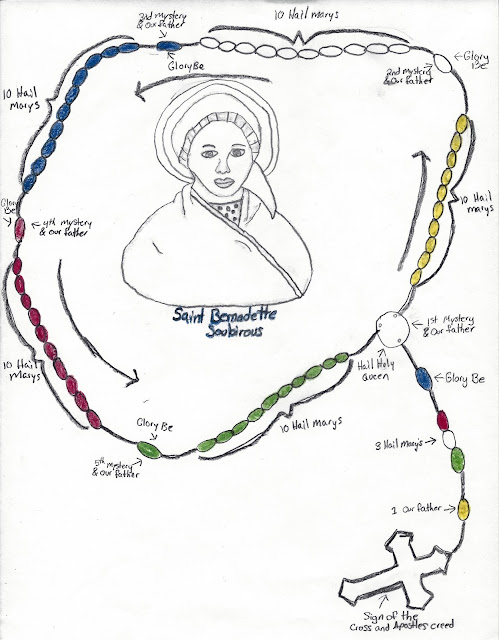 2nd mystery
& Our father
10 Hail marys
Glory Be
Glory
Be
2nd mystery
& Our father
10 Hail
marys
10 Hail
marys
Glory
Be
4th mystery
& Our father
Saint Bernadette
Soubirous
1st Mystery
& Our father
Hail Holy
Queen
Glory Be
10 Hail
Marys
Glory Be
10 Hail Marys
3 Hail Mary's
5th mystery
& Our father
1 Our father
Sign of the
Cross and Apostles creed